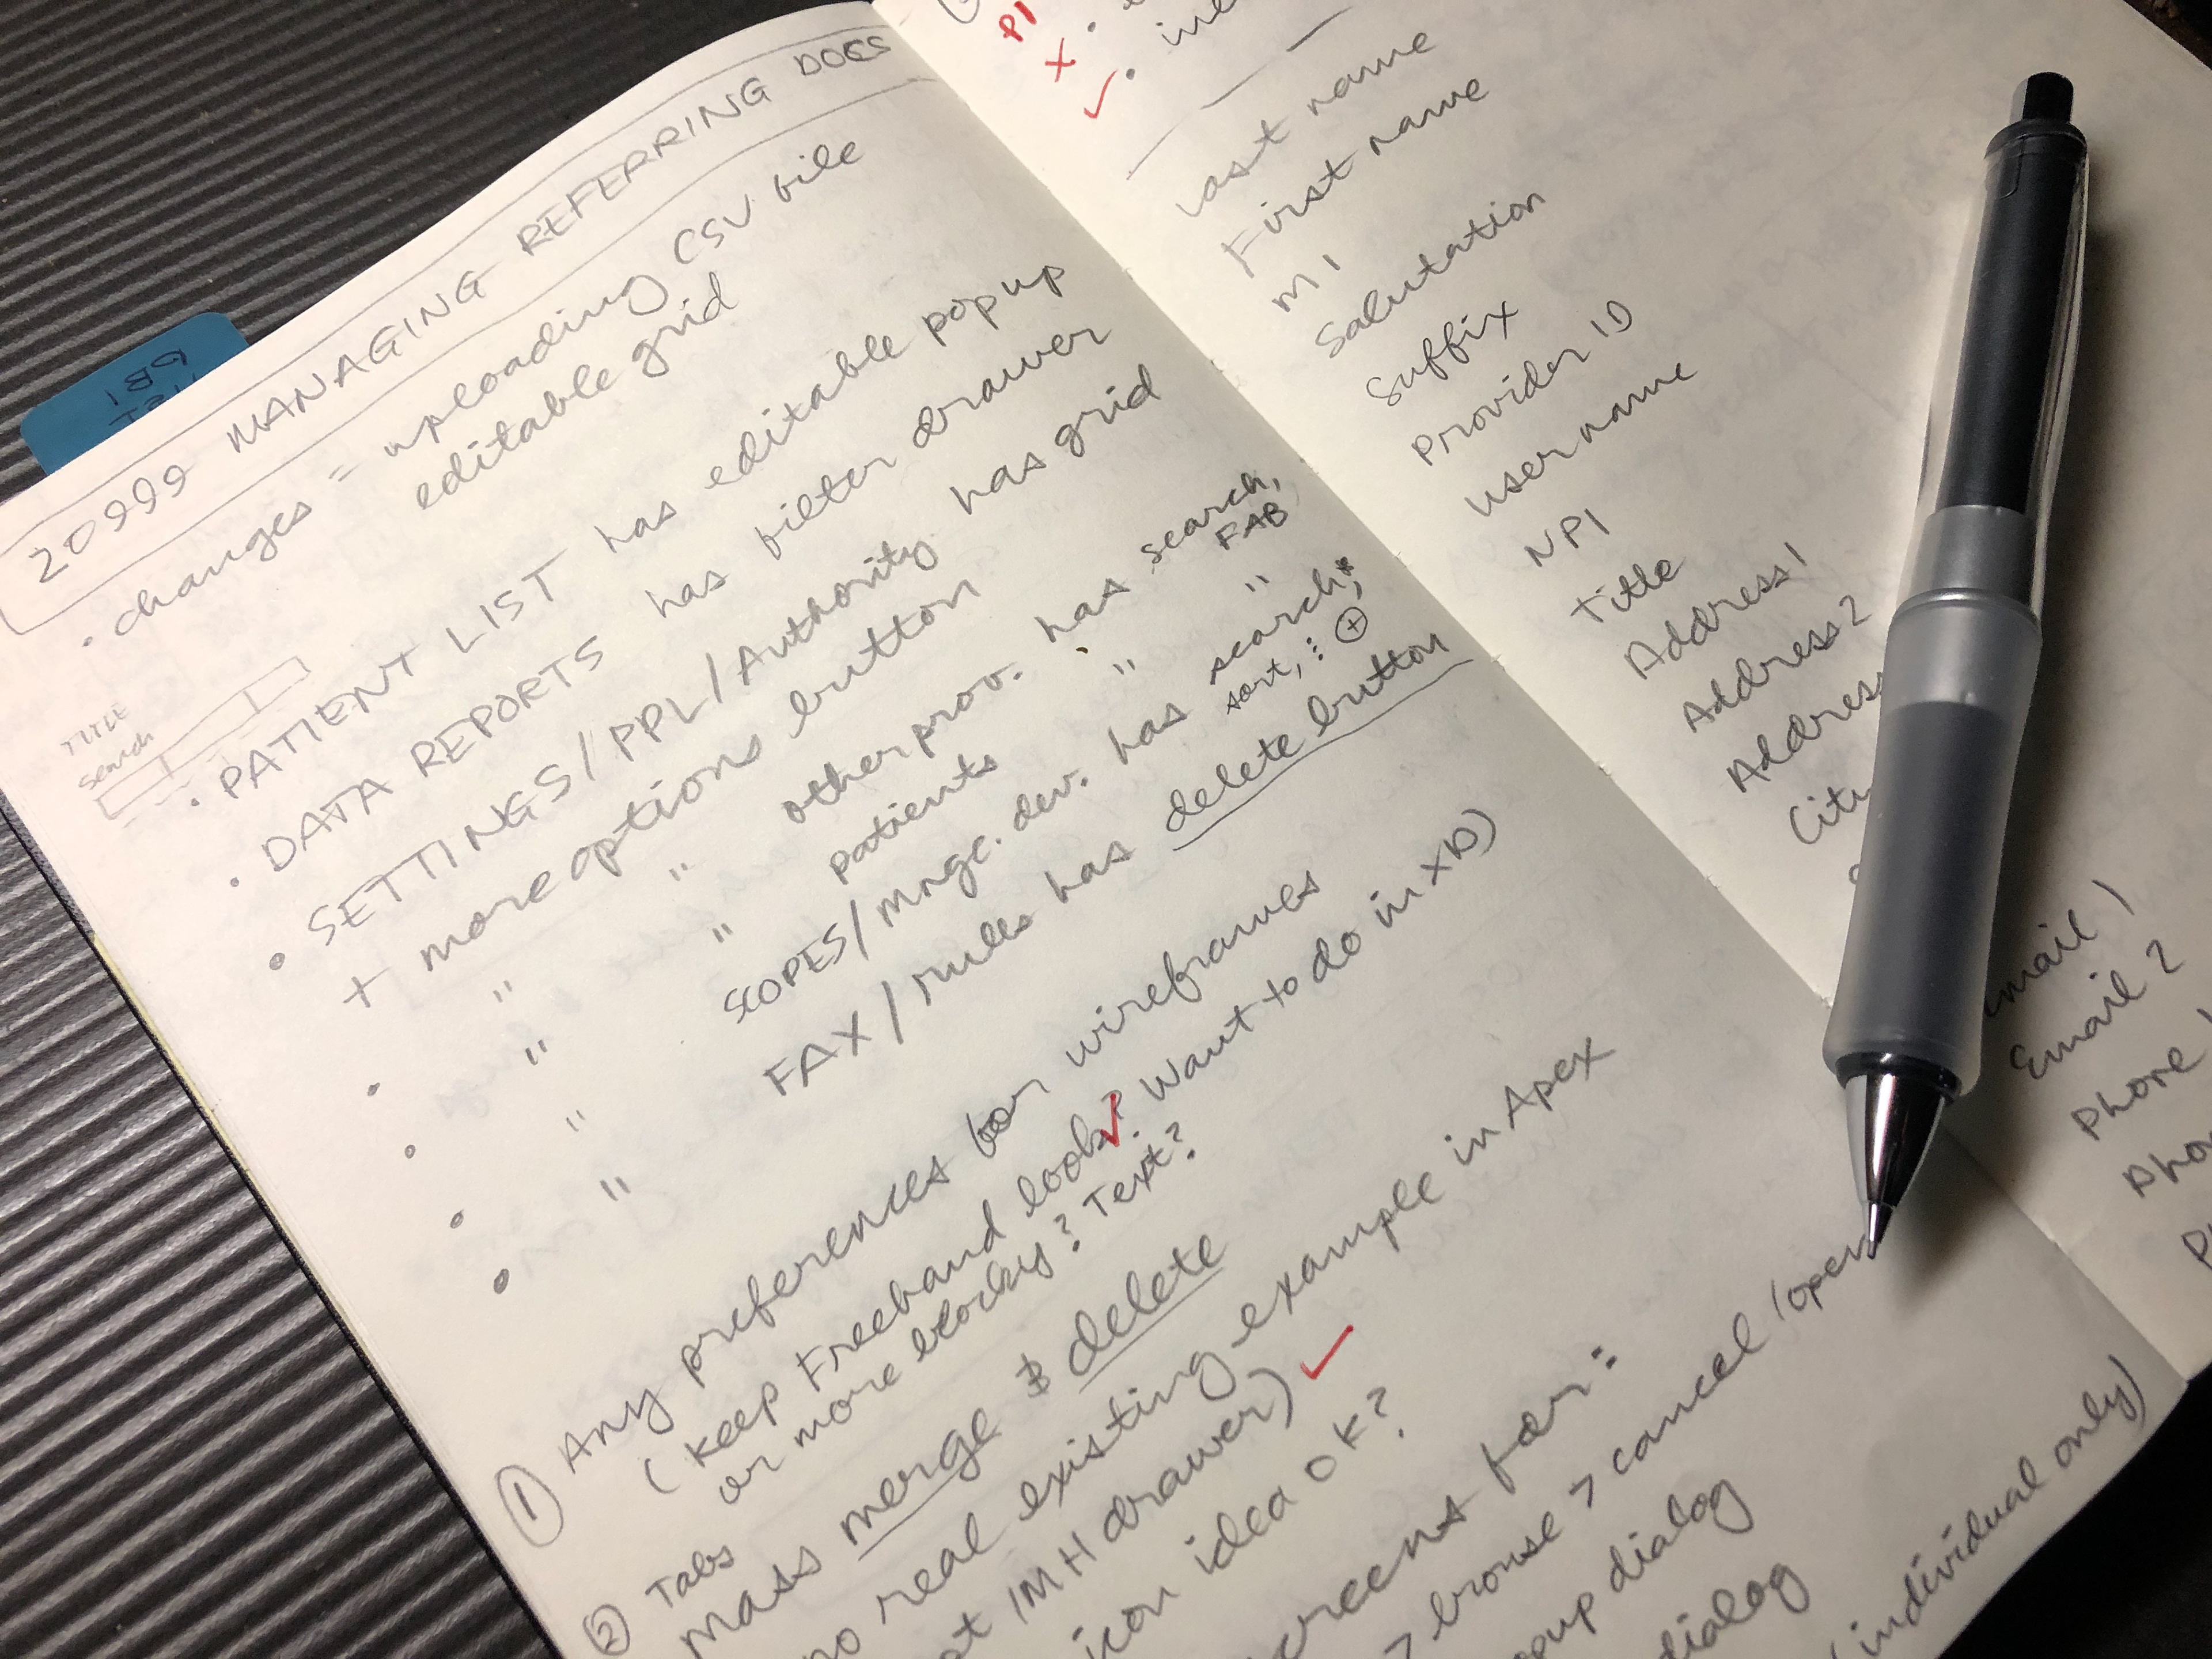 20999 MANAGING REFERRING DOCS
• changes = uploading CSV file
editable grid
TITLE
search
• PATIENT LIST has editable popup
• DATA REPORTS has filter drawer
• SETTINGS/PPL/Authority has grid
+ more options button
• " " other prov. has search, FAB
• " " patients " "
• " SCOPES/mngc. dev. has search,* sort, ⋮ ⊕
• " FAX/rules has delete button
① Any preferences for wireframes
(keep Freehand look? Want to do in XD)
or more blocky? Text?
② Tabs
Mass merge & delete
no real existing example in Apex
IMH drawer) ✓
icon idea OK?
screens for:
> browse > cancel (open
popup dialog
dialog
(individual only)
PI
X •
✓ •
Last name
First name
MI
Salutation
Suffix
Provider ID
User name
NPI
Title
Address 1
Address 2
Address
City
Email 1
Email 2
Phone 1
Pho